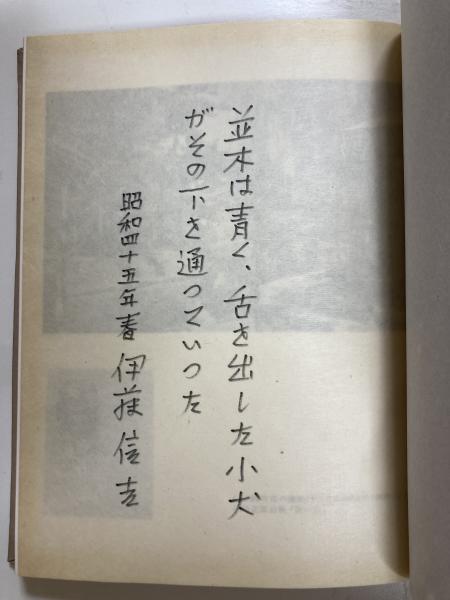 並木は青く、舌を出した小犬
がその下を通つていつた
昭和四十五年春 伊藤信吉